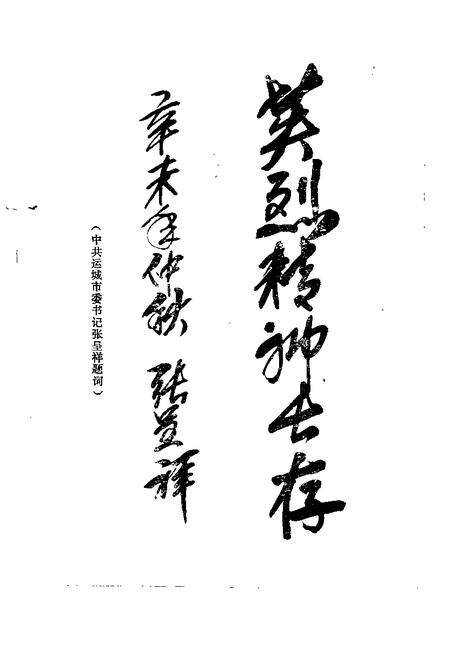 英烈精神长存
辛未年仲秋 张呈祥
（中共运城市委书记张呈祥题词）